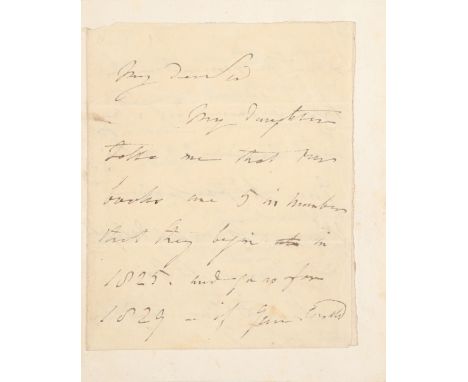 My dear Sir
My Daughter
tells me that
books are 5 in number
that they begin in
1825. and go as far
1829 - if